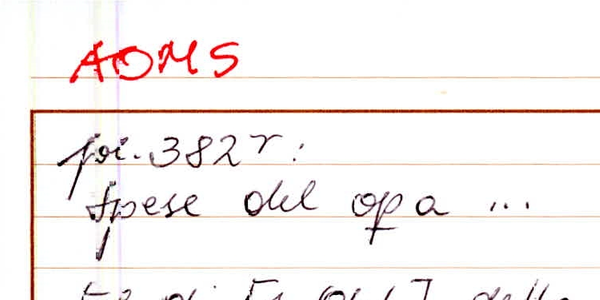 AOMS
foi. 382r:
Spese del opa ...